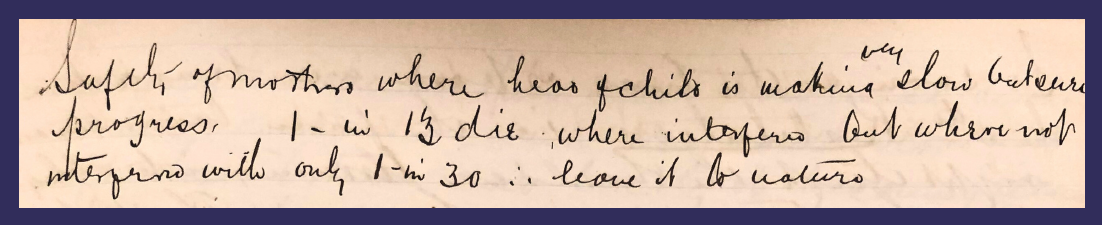 Safety of mothers where head of child is making very slow but sure
progress. 1 - in 13 die where interfered but where not
interfered with only 1 - in 30 ∴ leave it to nature